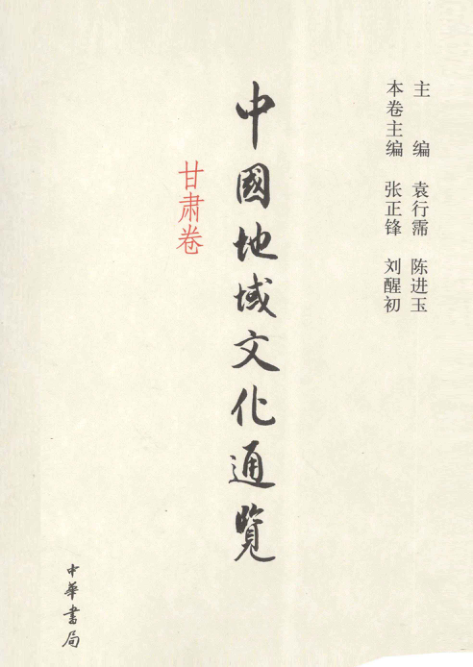 主 编 袁行霈 陈进玉
本卷主编 张正锋 刘醒初
中國地域文化通覽
甘肃卷
中華書局